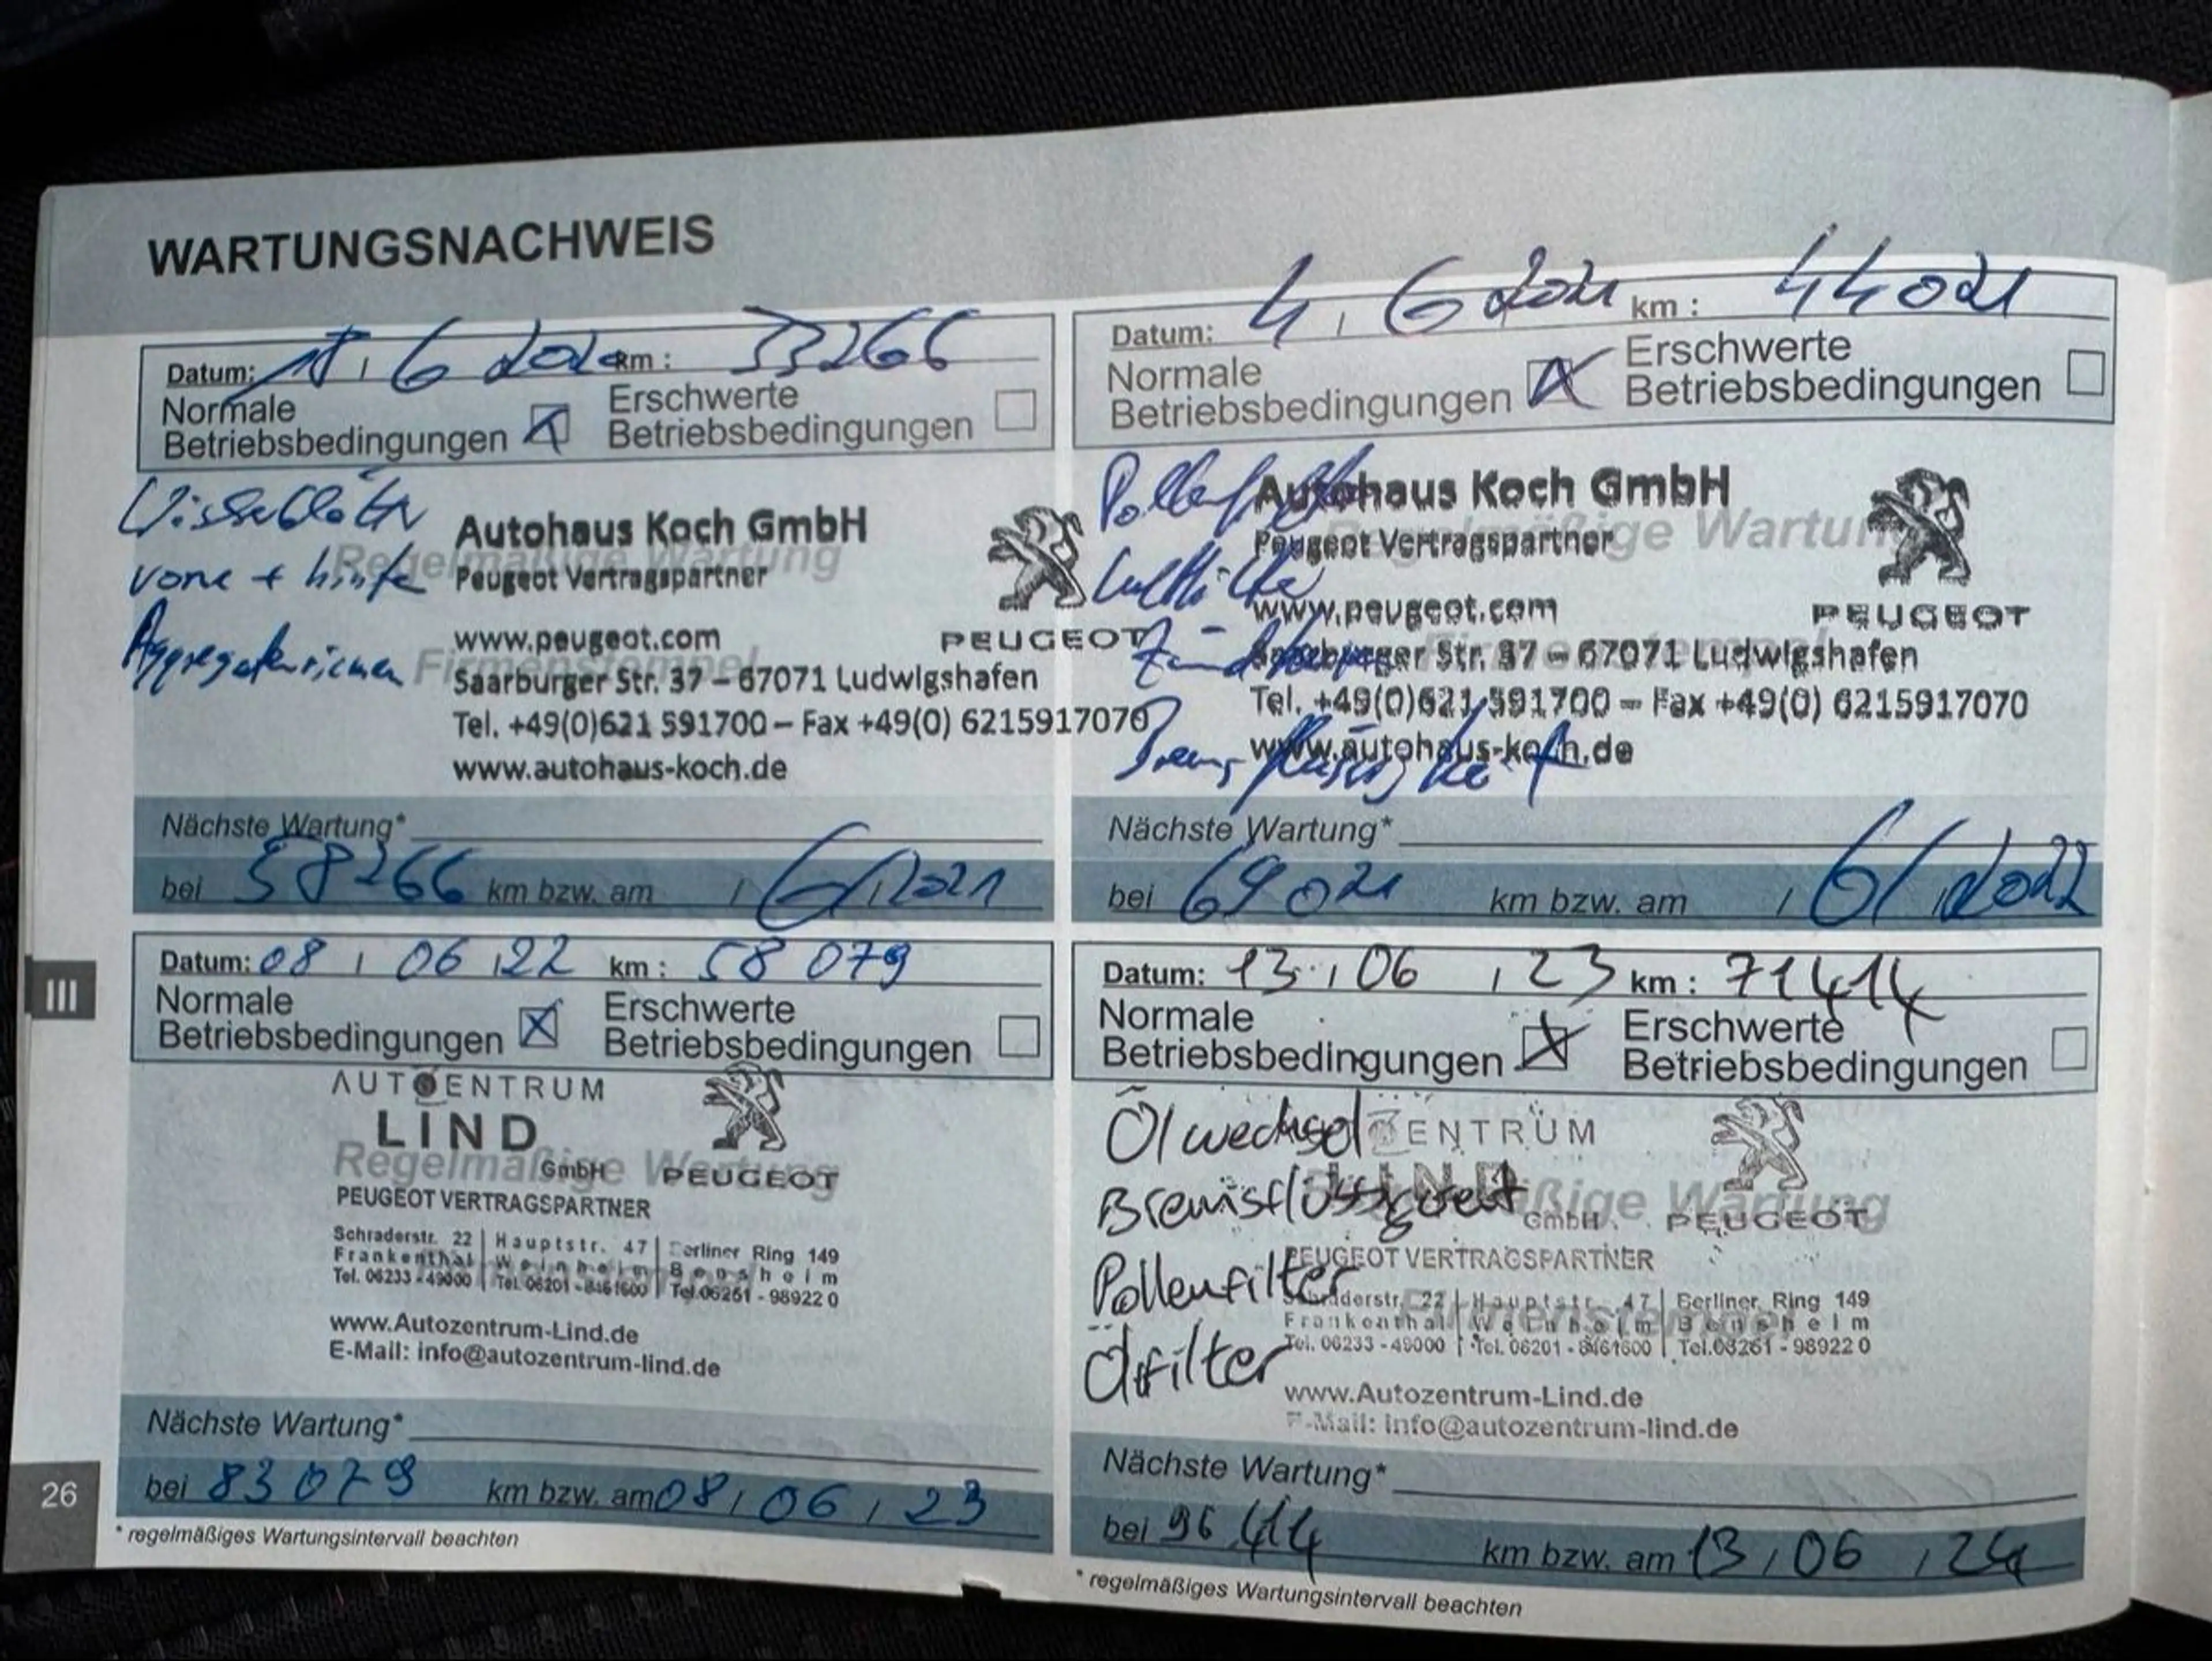 WARTUNGSNACHWEIS
Datum: 18, 6 2020 km : 33266
Normale
Betriebsbedingungen
Erschwerte
Betriebsbedingungen
vorne + hinten
Aggregateriemen
Regelmäßige Wartung
Firmenstempel
Autohaus Koch GmbH
Peugeot Vertragspartner
PEUGEOT
www.peugeot.com
Saarburger Str. 37 – 67071 Ludwigshafen
Tel. +49(0)621 591700 – Fax +49(0) 6215917070
www.autohaus-koch.de
Nächste Wartung*
bei 58266 km bzw. am / 6/2021
Datum: 4, 6 2021 km : 44021
Normale
Betriebsbedingungen
Erschwerte
Betriebsbedingungen
Pollenfilter
Luftfilter
Zündkerzen
Bremsflüssigkeit
Regelmäßige Wartung
Autohaus Koch GmbH
Peugeot Vertragspartner
PEUGEOT
www.peugeot.com
Saarburger Str. 37 – 67071 Ludwigshafen
Tel. +49(0)621 591700 – Fax +49(0) 6215917070
www.autohaus-koch.de
Nächste Wartung*
bei 69021 km bzw. am / 6/2022
III
Datum: 08 / 06 /22 km : 58 079
Normale
Betriebsbedingungen
Erschwerte
Betriebsbedingungen
Regelmäßige Wartung
AUTOZENTRUM
LIND
GmbH
PEUGEOT
PEUGEOT VERTRAGSPARTNER
Schraderstr. 22 | Hauptstr. 47 | Berliner Ring 149
Frankenthal | Weinheim | Bensheim
Tel. 06233 - 49000 | Tel. 06201 - 8461600 | Tel.06251 - 98922 0
www.Autozentrum-Lind.de
E-Mail: info@autozentrum-lind.de
Nächste Wartung*
bei 83079 km bzw. am 08 / 06 / 23
* regelmäßiges Wartungsintervall beachten
Datum: 13 / 06 / 23 km : 71414
Normale
Betriebsbedingungen
Erschwerte
Betriebsbedingungen
Ölwechsel
Bremsflüssigkeit
Pollenfilter
Ölfilter
Regelmäßige Wartung
Firmenstempel
ZENTRUM
LIND
GmbH
PEUGEOT
PEUGEOT VERTRAGSPARTNER
Schraderstr. 22 | Hauptstr. 47 | Berliner Ring 149
Frankenthal | Weinheim | Bensheim
Tel. 06233 - 49000 | Tel. 06201 - 8461600 | Tel.06251 - 98922 0
www.Autozentrum-Lind.de
E-Mail: info@autozentrum-lind.de
Nächste Wartung*
bei 96414 km bzw. am 13 / 06 / 24
* regelmäßiges Wartungsintervall beachten
26